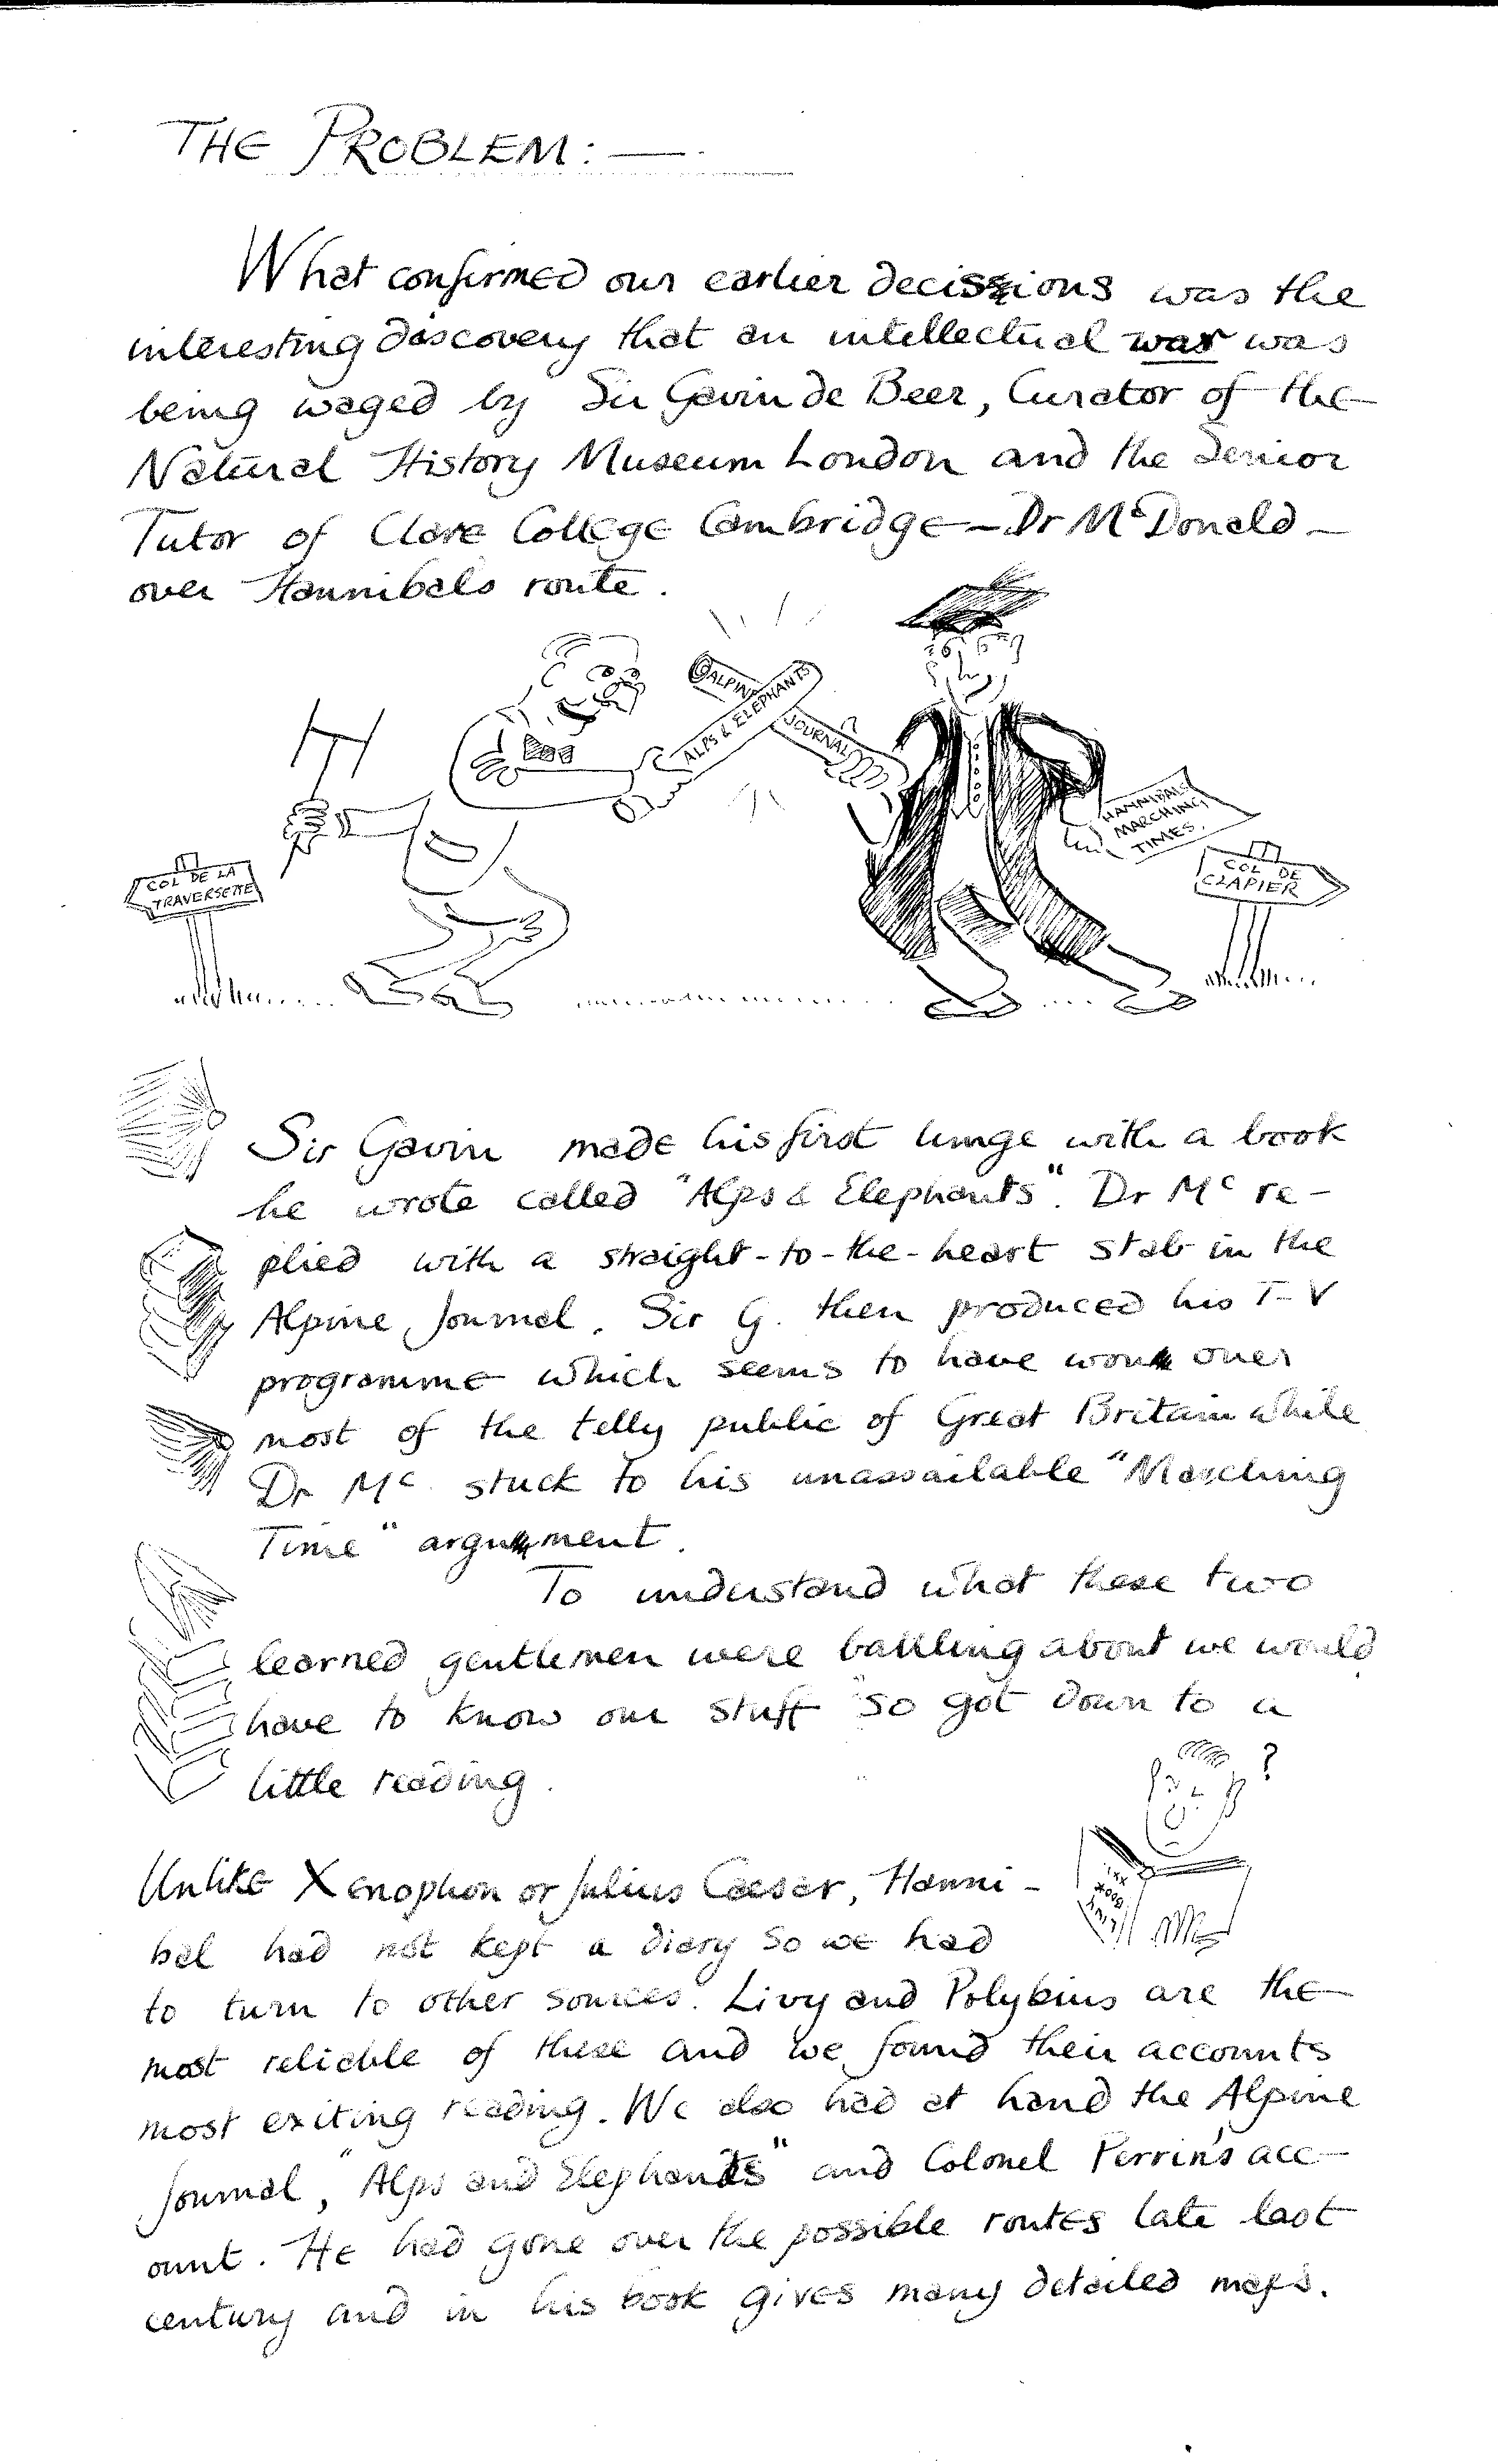 THE PROBLEM: —
What confirmed our earlier decisions was the
interesting discovery that an intellectual war was
being waged by Sir Gavin de Beer, Curator of the
Natural History Museum London and the Senior
Tutor of Clare College Cambridge — Dr McDonald —
over Hannibals route.
ALPINE JOURNAL
ALPS & ELEPHANTS
HANNIBALS
MARCHING
TIMES.
COL DE LA
TRAVERSETTE
COL DE
CLAPIER
Sir Gavin made his first lunge with a book
he wrote called "Alps & Elephants". Dr Mc re-
plied with a straight-to-the-heart stab in the
Alpine Journal. Sir G. then produced his T-V
programme which seems to have won over
most of the telly public of Great Britain while
Dr Mc. stuck to his unassailable "Marching
Time" argument.
To understand what these two
learned gentlemen were battling about we would
have to know our stuff so got down to a
little reading.
?
LIVY
BOOK
XXI
Unlike Xenophon or Julius Caesar, Hanni-
bal had not kept a diary so we had
to turn to other sources. Livy and Polybius are the
most reliable of these and we found their accounts
most exiting reading. We also had at hand the Alpine
Journal, "Alps and Elephants" and Colonel Perrin's acc-
ount. He had gone over the possible routes late last
century and in his book gives many detailed maps.